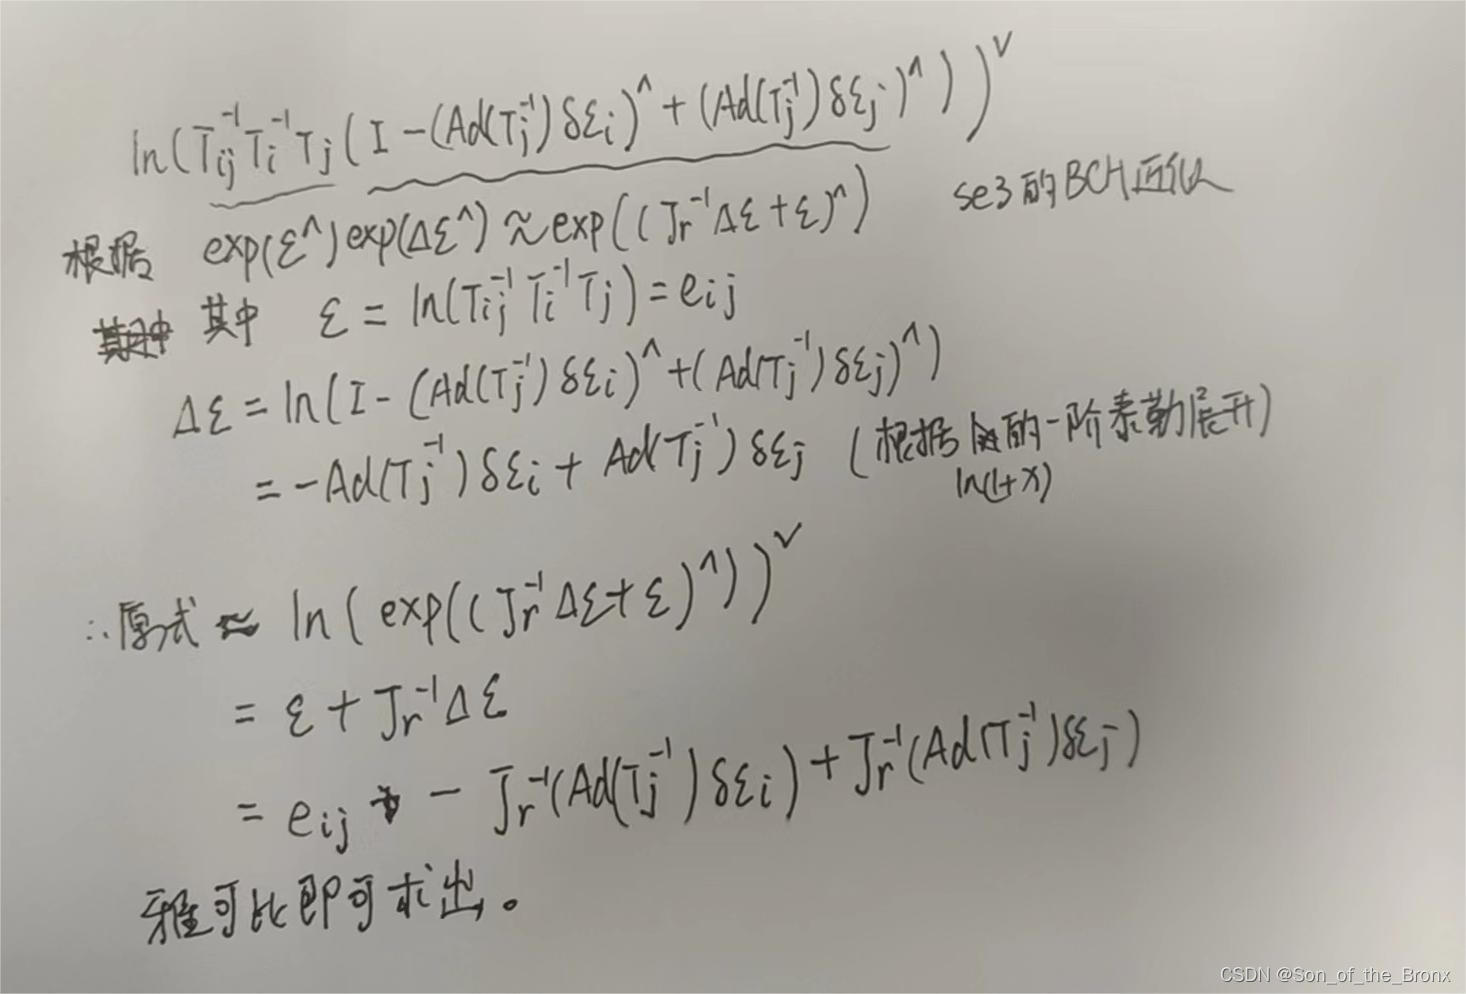 ln(T_ij^-1 T_i^-1 T_j (I - (Ad(T_j^-1) δε_i)^∧ + (Ad(T_j^-1) δε_j)^∧))^∨
根据 exp(ε^∧) exp(Δε^∧) ≈ exp((J_r^-1 Δε + ε)^∧) se3的BCH近似
其中 ε = ln(T_ij^-1 T_i^-1 T_j) = e_ij
Δε = ln(I - (Ad(T_j^-1) δε_i)^∧ + (Ad(T_j^-1) δε_j)^∧)
= -Ad(T_j^-1) δε_i + Ad(T_j^-1) δε_j (根据 的一阶泰勒展开)
ln(1+x)
∴原式 ≈ ln(exp((J_r^-1 Δε + ε)^∧))^∨
= ε + J_r^-1 Δε
= e_ij - J_r^-1(Ad(T_j^-1) δε_i) + J_r^-1(Ad(T_j^-1) δε_j)
雅可比即可求出。
CSDN @Son_of_the_Bronx